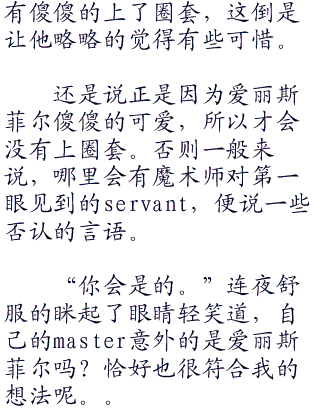 有傻傻的上了圈套，这倒是
让他略略的觉得有些可惜。
还是说正是因为爱丽斯
菲尔傻傻的可爱，所以才会
没有上圈套。否则一般来
说，哪里会有魔术师对第一
眼见到的servant，便说一些
否认的言语。
“你会是的。”连夜舒
服的眯起了眼睛轻笑道，自
己的master意外的是爱丽斯
菲尔吗？恰好也很符合我的
想法呢。。